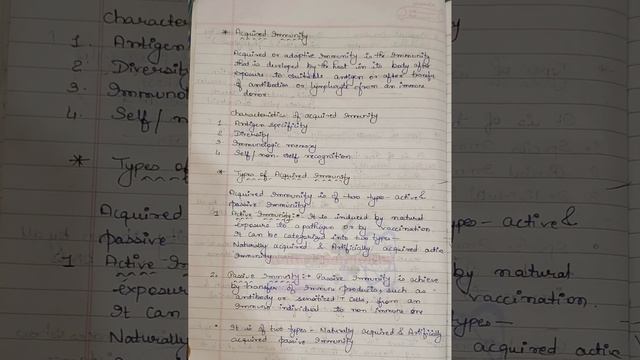 * Acquired Immunity
Acquired or adaptive immunity is the immunity
that is developed by the host in its body after
exposure to suitable antigen or after transfer
of antibodies or lymphocyte from an immune
donor.
Characteristics of acquired immunity
1 Antigen specificity
2 Diversity
3 Immunologic memory
4 Self/non-self recognition
* Types of Acquired Immunity
Acquired Immunity is of two type - active &
passive immunity
1 Active Immunity:- It is induced by natural
exposure to a pathogen or by vaccination.
It can be categorized into two types-
Naturally acquired & Artificially acquired active
immunity
2. Passive Immunity:- Passive Immunity is achieve
by transfer of immune products, such as
antibody or sensitized T cells, from an
immune individual to non immune one
• It is of two types - Naturally acquired & Artificially
acquired passive immunity